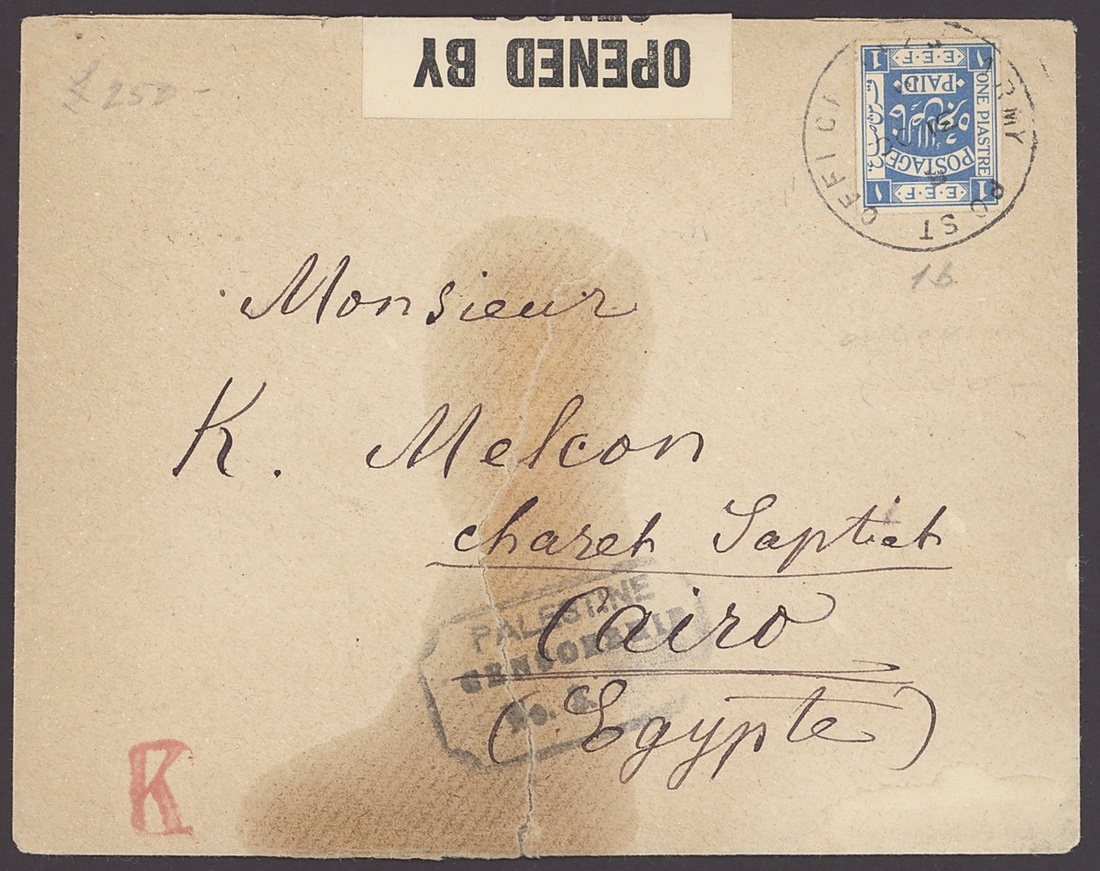 OPENED BY
CENSOR
£250-
1 E.E.F 1
PAID
ONE PIASTRE
POSTAGE
1 E.E.F 1
ARMY POST OFFICE
1b.
Monsieur
K. Melcon
chareh Saptieh
Cairo
(Egypte)
PALESTINE
CENSORSHIP
No.
K